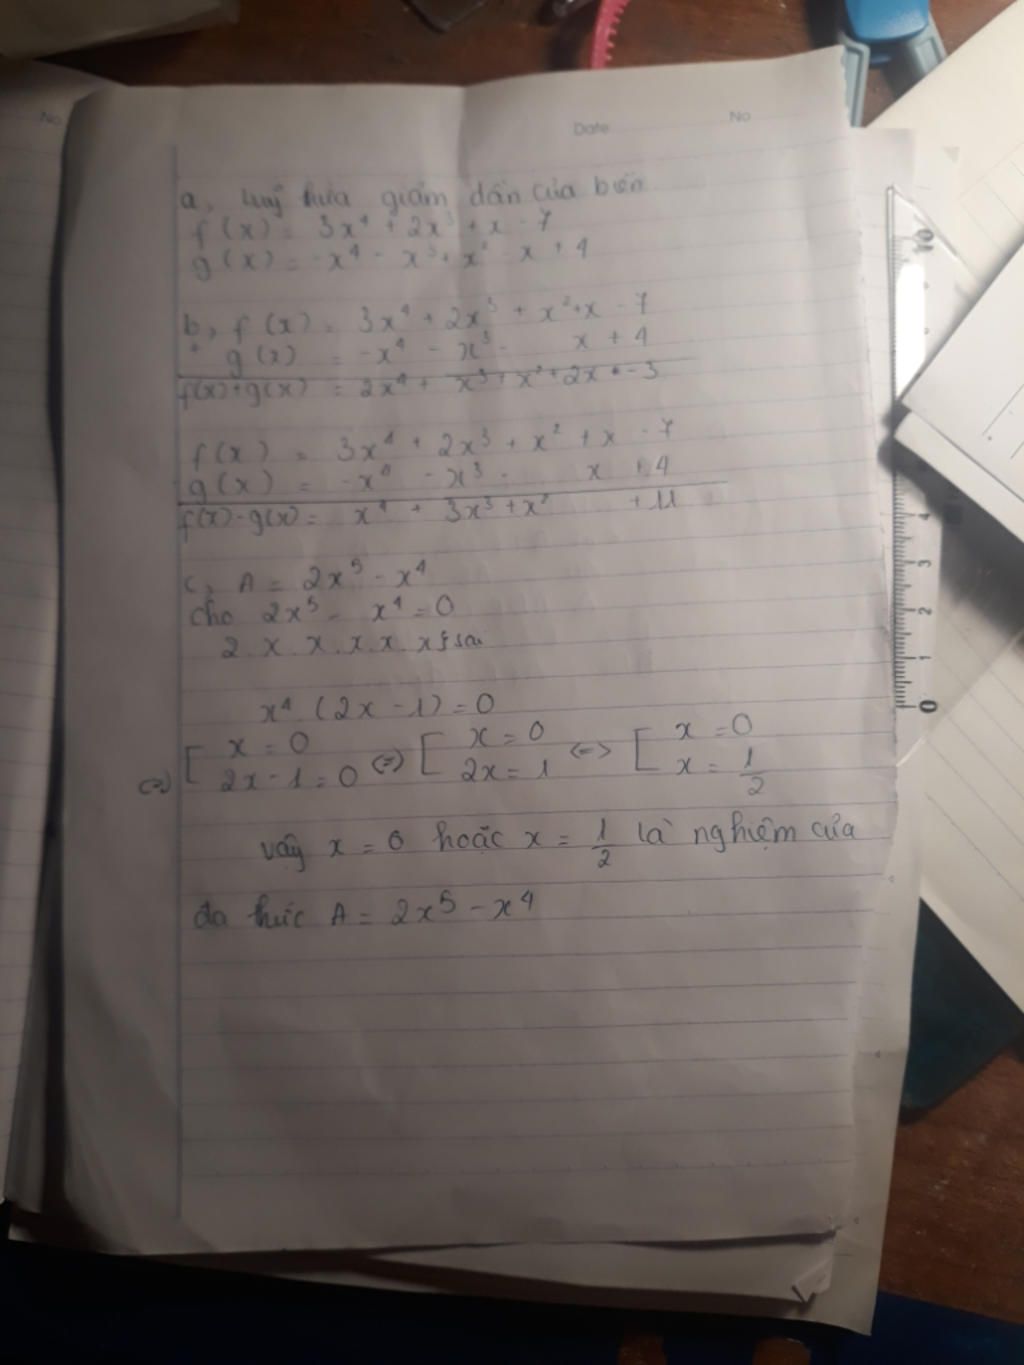 No
Date No
a, luỹ thừa giảm dần của biến
f(x) = 3x⁴ + 2x³ + x - 7
g(x) = -x⁴ - x³ + x² - x + 4
b, f(x) = 3x⁴ + 2x³ + x² + x - 7
+ g(x) = -x⁴ - x³ - x + 4
f(x)+g(x) = 2x⁴ + x³ + x² + 2x + -3
f(x) = 3x⁴ + 2x³ + x² + x - 7
g(x) = -x⁴ - x³ - x + 4
f(x)-g(x) = x⁴ + 3x³ + x² + 11
c, A = 2x⁵ - x⁴
cho 2x⁵ - x⁴ = 0
2 . x . x . x . x . x } sai
x⁴ . (2x - 1) = 0
(=) [ x = 0 2x - 1 = 0 (=) [ x = 0 2x = 1 <=> [ x = 0 x = 1/2
vậy x = 0 hoặc x = 1/2 là nghiệm của
đa thức A = 2x⁵ - x⁴
10
4
3
2
1
0